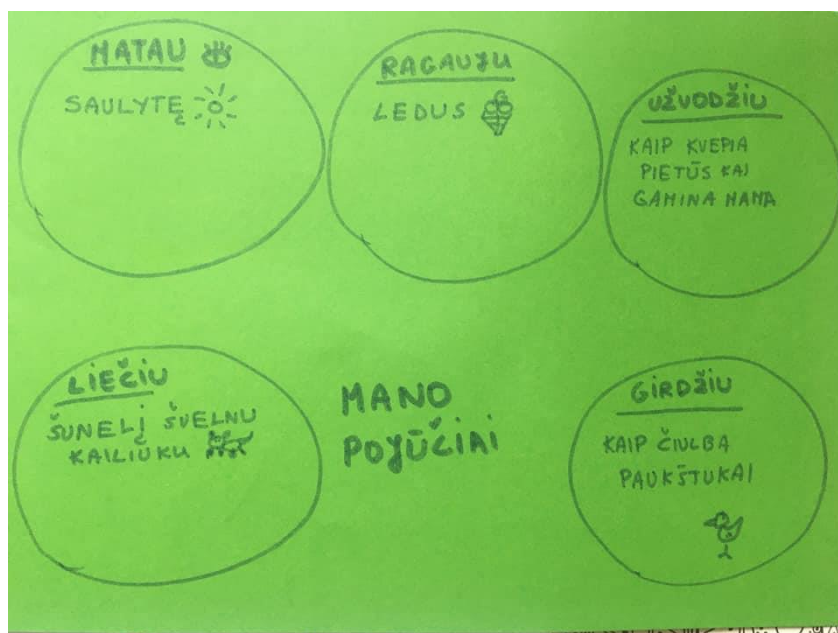 MATAU
SAULYTĘ
RAGAUJU
LEDUS
UŽUODŽIU
KAIP KVEPIA
PIETŪS KAI
GAMINA MAMA
LIEČIU
ŠUNELĮ ŠVELNU
KAILIUKU
MANO
POJŪČIAI
GIRDŽIU
KAIP ČIULBA
PAUKŠTUKAI